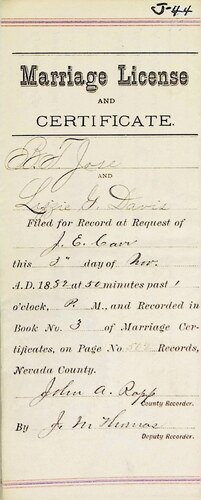 J-44
Marriage License
AND
CERTIFICATE.
B. F. Jose
AND
Lizzie G. Davis
Filed for Record at Request of
J. E. Carr
this 3" day of Nov.
A.D. 18 at 50 minutes past 1
o'clock, P. M., and Recorded in
Book No. 3 of Marriage Cer-
tificates, on Page No. Records,
Nevada County.
John A. Rapp
County Recorder.
By J. M. Thomas
Deputy Recorder.